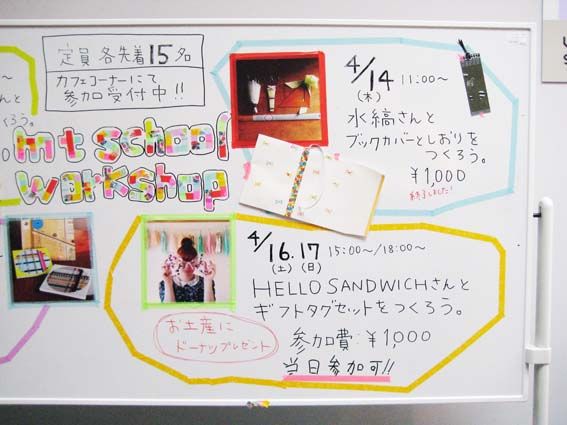 定員 各先着15名
カフェコーナーにて
参加受付中!!
mt school
workshop
4/14 11:00~
(木)
水縞さんと
ブックカバーとしおりを
つくろう。
¥1,000
終了しました!
~
んと
くろう。
4/16.17 15:00~/18:00~
(土)(日)
HELLO SANDWICHさんと
ギフトタグセットをつくろう。
参加費:¥1,000
当日参加可!!
お土産に
ドーナツプレゼント